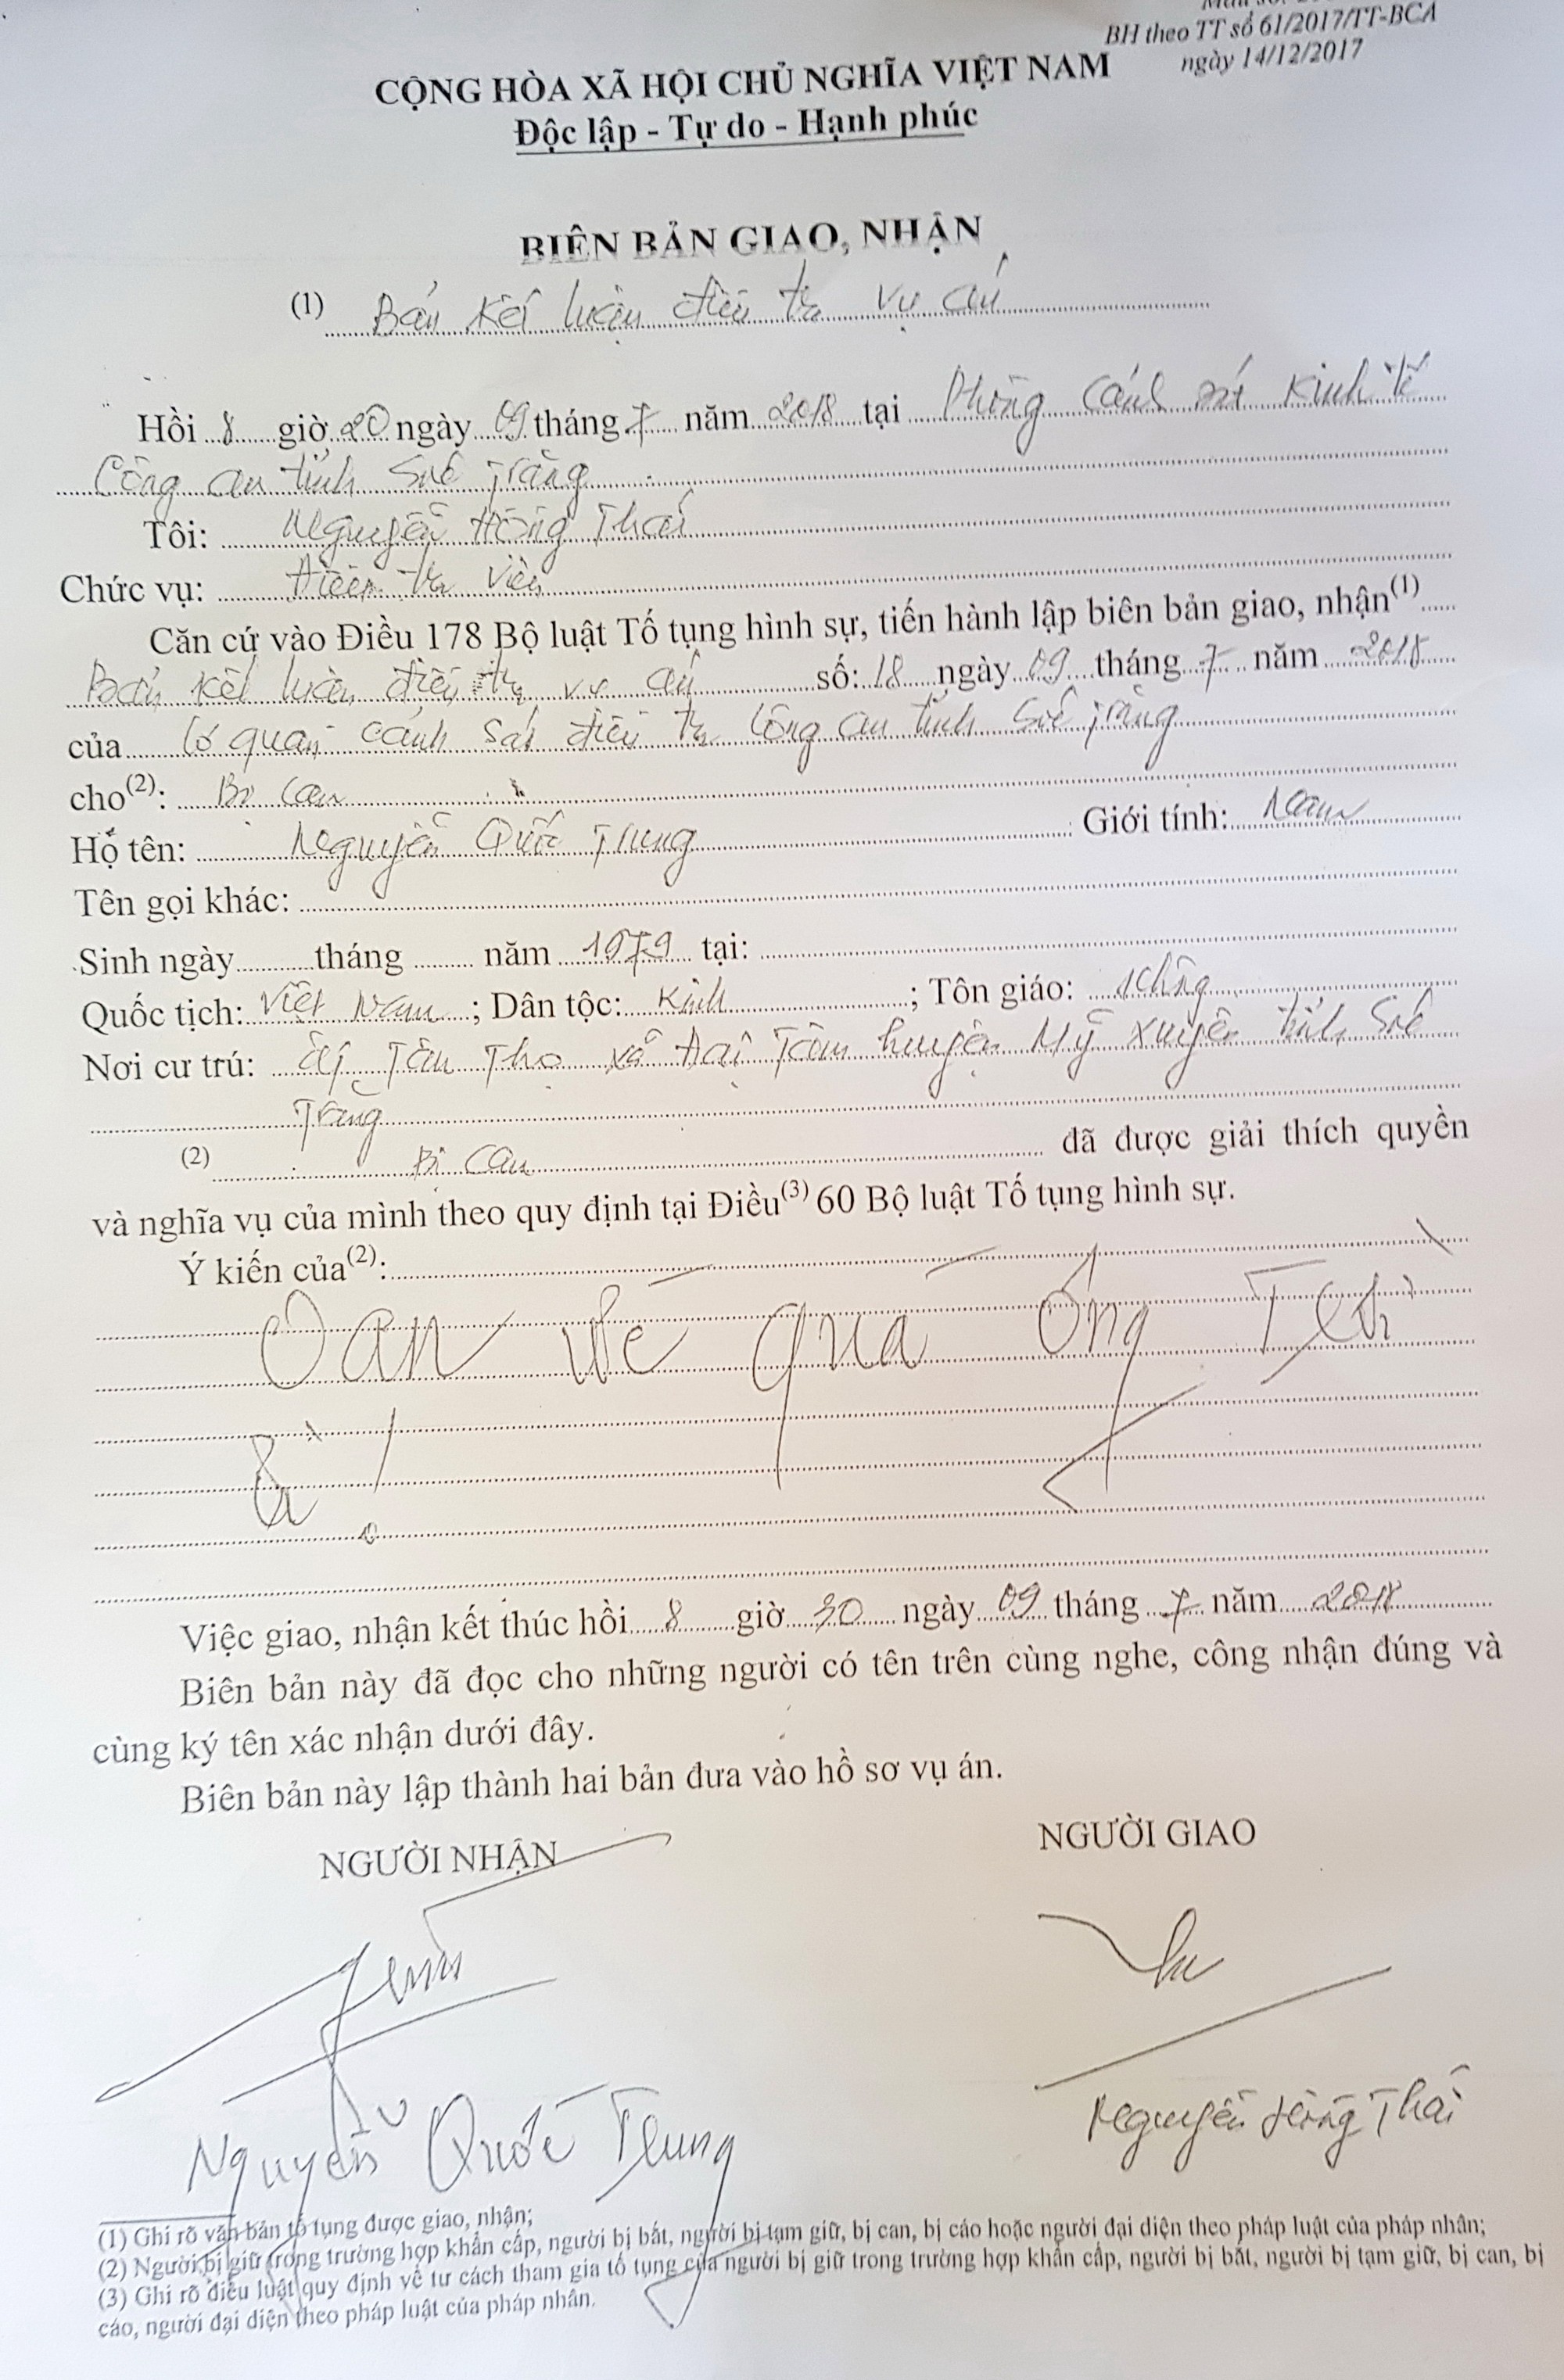 BH theo TT số 61/2017/TT-BCA
ngày 14/12/2017
CỘNG HÒA XÃ HỘI CHỦ NGHĨA VIỆT NAM
Độc lập - Tự do - Hạnh phúc
BIÊN BẢN GIAO, NHẬN
(1) Bản kết luận điều tra vụ án
Hồi 8 giờ 20 ngày 09 tháng 7 năm 2018 tại Phòng Cảnh sát Kinh tế
Công an tỉnh Sóc Trăng
Tôi: Nguyễn Hồng Thái
Chức vụ: Điều tra viên
Căn cứ vào Điều 178 Bộ luật Tố tụng hình sự, tiến hành lập biên bản giao, nhận(1)
Bản kết luận điều tra vụ án số: 18 ngày 09 tháng 7 năm 2018
của Cơ quan cảnh sát điều tra Công an tỉnh Sóc Trăng
cho(2): Bị can
Họ tên: Nguyễn Quốc Trung Giới tính: Nam
Tên gọi khác:
Sinh ngày tháng năm 1979 tại:
Quốc tịch: Việt Nam ; Dân tộc: Kinh ; Tôn giáo: Không
Nơi cư trú: ấp Tân Thọ xã Đại Tâm huyện Mỹ Xuyên tỉnh Sóc
Trăng
(2) Bị can đã được giải thích quyền
và nghĩa vụ của mình theo quy định tại Điều(3) 60 Bộ luật Tố tụng hình sự.
Ý kiến của(2):
Oan quá ông
!
Việc giao, nhận kết thúc hồi 8 giờ 30 ngày 09 tháng 7 năm 2018
Biên bản này đã đọc cho những người có tên trên cùng nghe, công nhận đúng và
cùng ký tên xác nhận dưới đây.
Biên bản này lập thành hai bản đưa vào hồ sơ vụ án.
NGƯỜI NHẬN NGƯỜI GIAO
Nguyễn Quốc Trung Nguyễn Hồng Thái
(1) Ghi rõ văn bản tố tụng được giao, nhận;
(2) Người bị giữ trong trường hợp khẩn cấp, người bị bắt, người bị tạm giữ, bị can, bị cáo hoặc người đại diện theo pháp luật của pháp nhân;
(3) Ghi rõ điều luật quy định về tư cách tham gia tố tụng của người bị giữ trong trường hợp khẩn cấp, người bị bắt, người bị tạm giữ, bị can, bị
cáo, người đại diện theo pháp luật của pháp nhân.